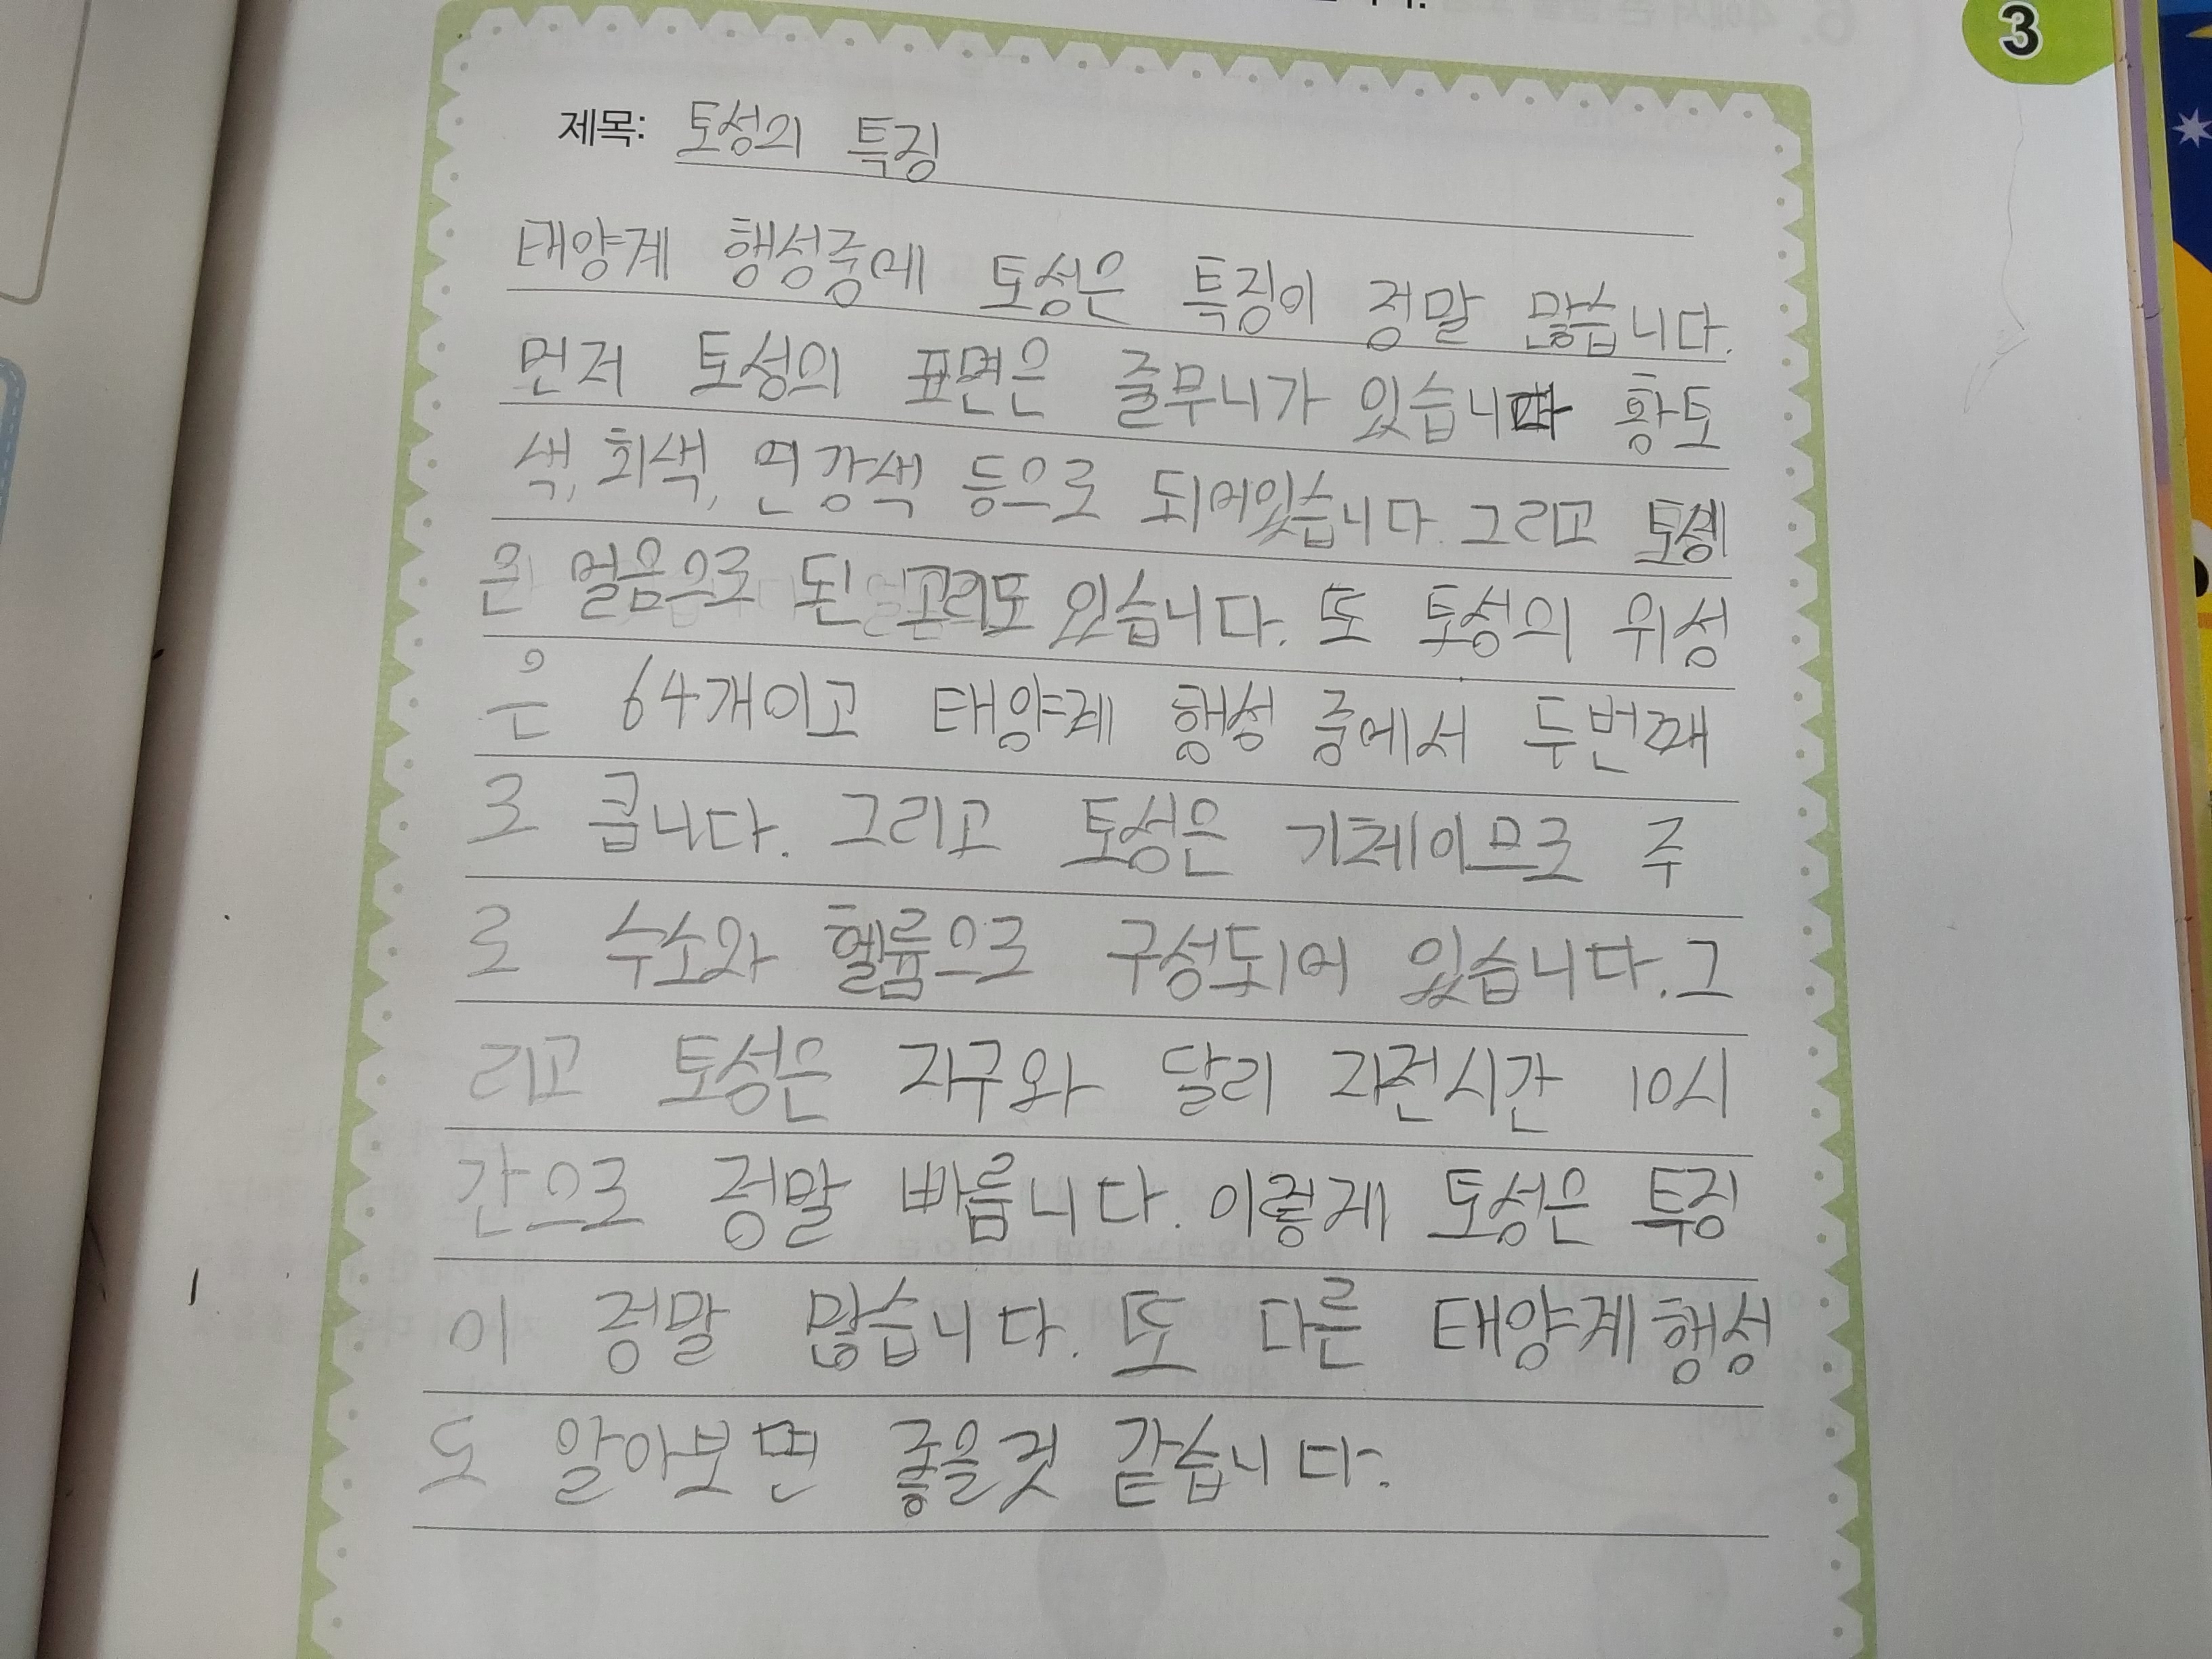 3
제목: 토성의 특징
태양계 행성중에 토성은 특징이 정말 많습니다.
먼저 토성의 표면은 줄무니가 있습니다 황토
색, 회색, 연갈색 등으로 되어있습니다. 그리고 토성
은 얼음으로 된 고리도 있습니다. 또 토성의 위성
은 64개이고 태양계 행성 중에서 두번째
로 큽니다. 그리고 토성은 기체이므로 주
로 수소와 헬륨으로 구성되어 있습니다. 그
리고 토성은 지구와 달리 자전시간 10시
간으로 정말 빠릅니다. 이렇게 토성은 특징
이 정말 많습니다. 또 다른 태양계 행성
도 알아보면 좋을것 같습니다.